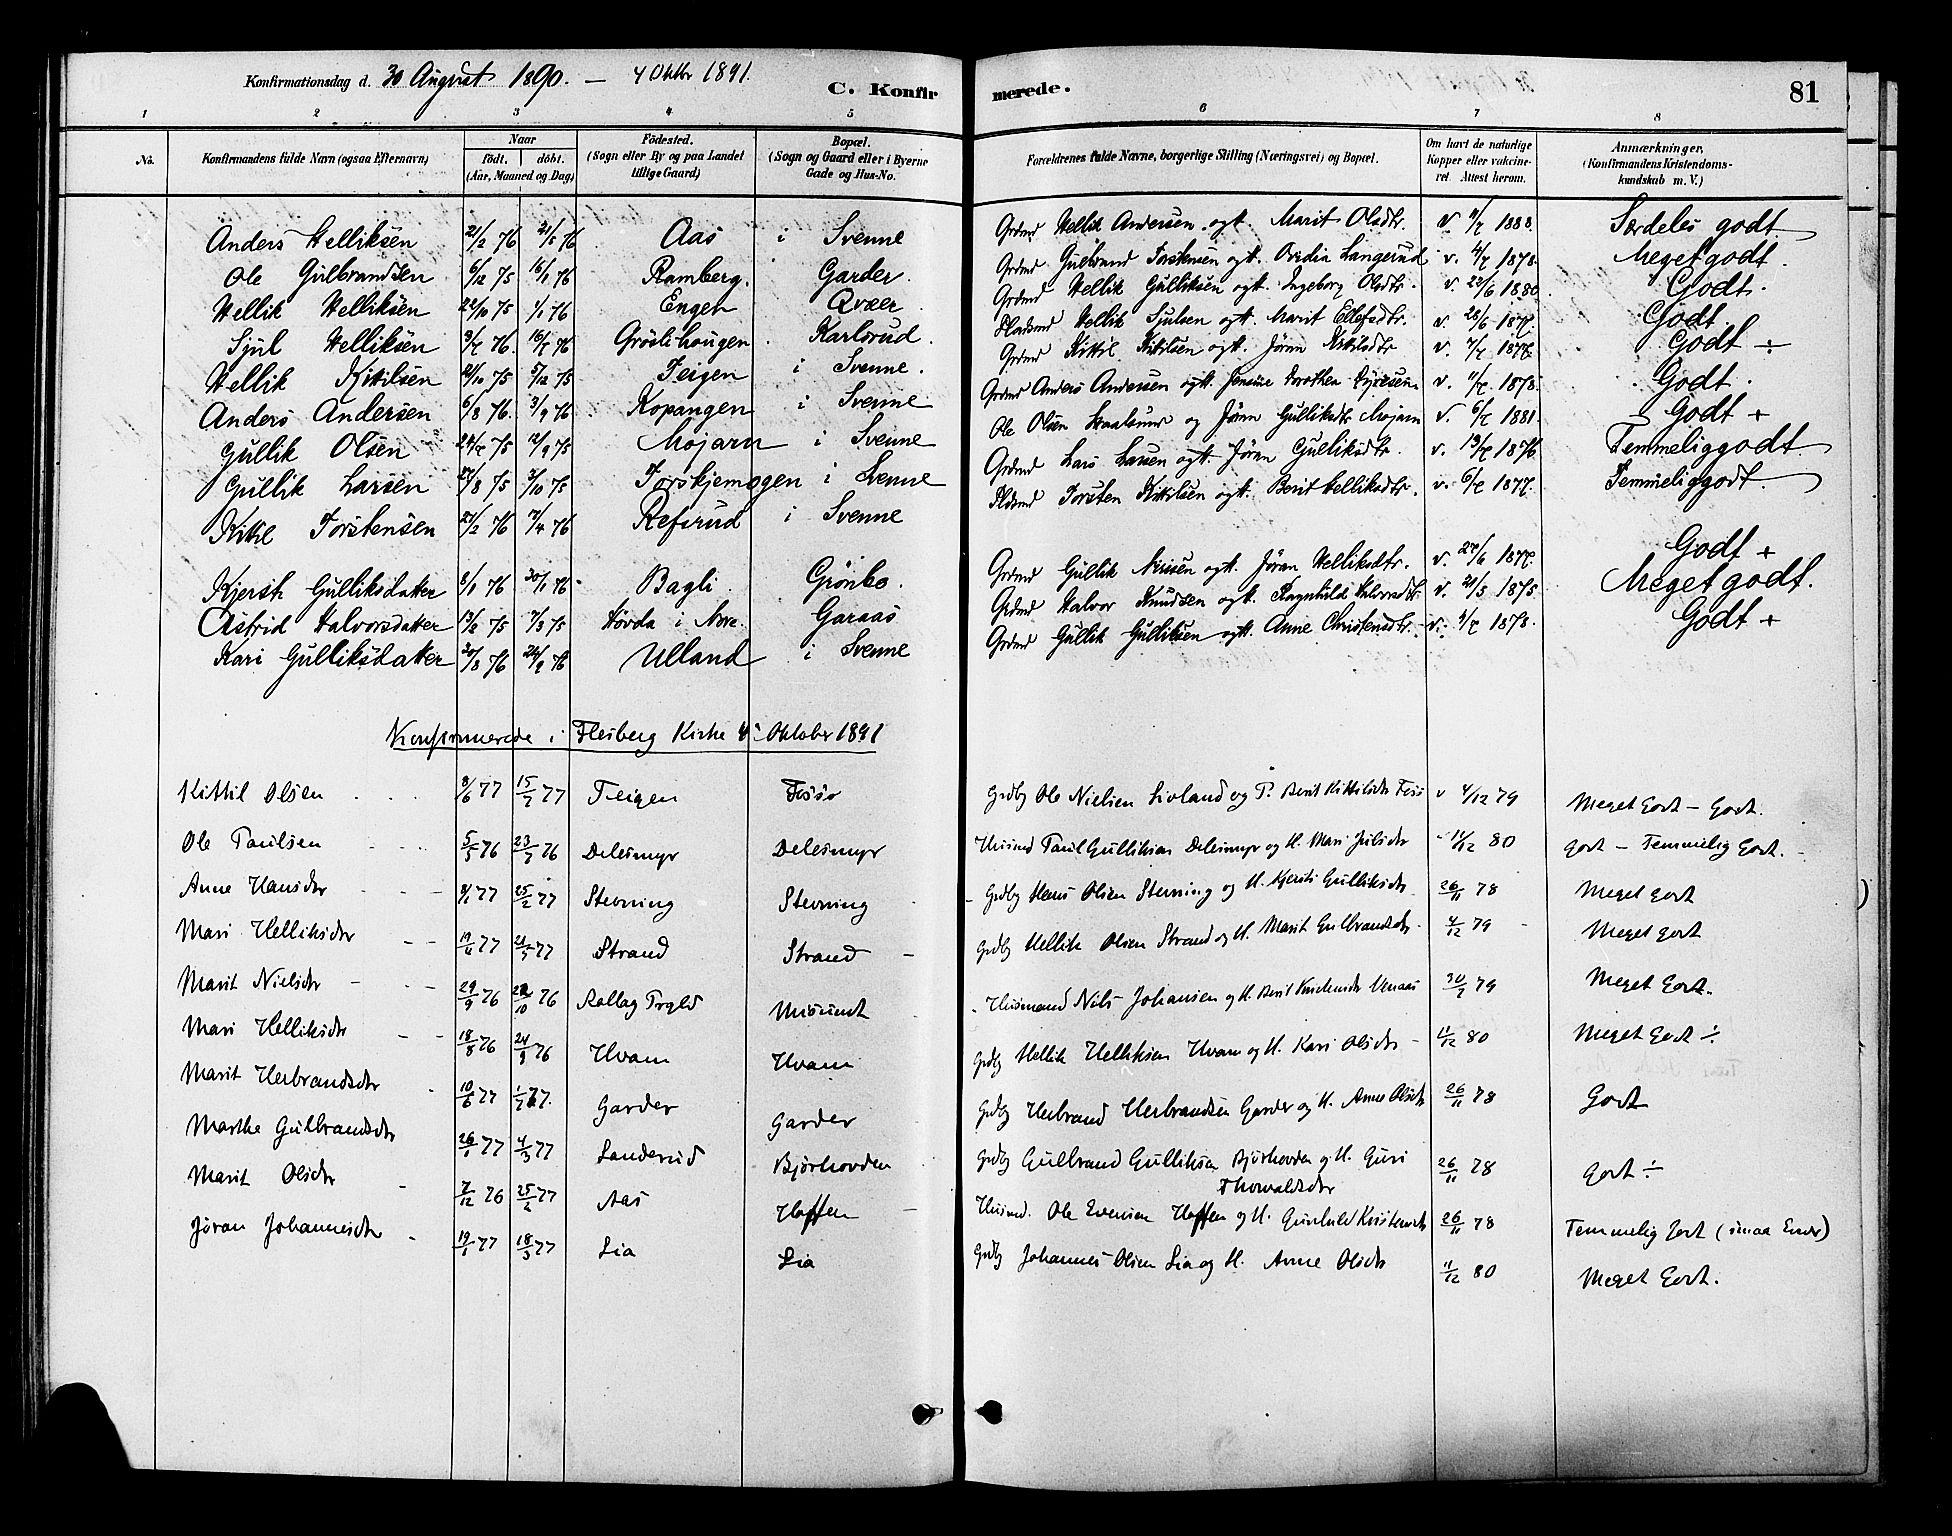 Konfirmationsdag d. 30 August 1890. — 4 Oktbr 1891.
C. Konfirmerede.
81
1 2 3 4 5 6 7 8
No. Konfirmandens fulde Navn (ogsaa Efternavn) Naar födt. döbt. (Aar, Maaned og Dag) Födested. (Sogn eller By og paa Landet tillige Gaard) Bopæl. (Sogn og Gaard eller i Byerne Gade og Hus-No. Forældrenes fulde Navne, borgerlige Stilling (Næringsvei) og Bopæl. Om havt de naturlige Kopper eller vakcineret. Attest herom. Anmærkninger. (Konfirmandens Kristendomskundskab m. V.)
Anders Helliksen 21/2 76 21/5 76 Aas i Svenne Grdmd Hellik Andersen og H. Marit Olsdtr. v. 11/7 1888. Særdeles godt
Ole Gulbrandsen 6/12 75 16/1 76 Ramberg. Garder. Grdmd Gulbrand Torstensen og H. Ovedia Langerud v. 4/7 1878. Meget godt.
Hellik Helliksen 22/10 75 1/1 76 Engen Qvær Grdmd Hellik Gulliksen og H. Ingeborg Olsdtr. v. 22/6 1880. Godt.
Sjul Helliksen 3/7 76. 16/7 76 Gröslihougen Karlsrud. Pladsmd Hellik Sjulsen og H. Marit Ellefsdtr. v. 28/6 1877. Godt
Hellik Kittilsen 21/10 75 5/12 75 Teigen i Svenne. Grdmd Kittil Kittilsen og H. Jöran Kittilsdtr v. 7/7 1877. Godt ÷
Anders Andersen 6/8 76. 3/9 76 Kopangen i Svenne Grdmd Anders Andersen og H. Dorothea v. 11/7 1878. Godt.
Gullik Olsen 24/7 75 12/9 75 Mojarn i Svenne Ole Olsen og Jöran Gulliksdtr Mojarn v. 6/7 1881. Godt +
Gullik Larsen 27/8 75 3/10 75 Torskjemogen i Svenne Grdmd Lars Larsen og H. Jöran Gulliksdtr. v. 13/7 1876 Temmeliggodt
Kittil Torstensen 27/2 76 7/4 76 Refsrud i Svenne Torsten Kittilsen og H. Berit Helliksdtr. v. 6/7 1877. Temmeliggodt.
Kjersti Gulliksdatter 8/1 76 30/1 76 Bagli Grönbo. Grdmd Gullik Nilsen og H. Jöran Helliksdtr. v. 27/6 1877. Godt +
Astrid Halvorsdatter 13/2 75 7/3 75 Hövda i Nore. Garaas Grdmd Halvor Knudsen og H. Ragnhild Halvorsdtr v. 21/5 1875. Meget godt.
Kari Gulliksdatter 20/8 76 24/9 76 Ulland i Svenne Grdmd Gullik Gulliksen og H. Anne Christensdtr. v. 4/7 1878. Godt +
Konfirmerede i Flesberg Kirke 4. Oktober 1891
Kittil Olsen 8/6 77 15/7 77 Teigen Fossö Grdbg Ole Nielsen Livland og P. Berit Kittilsdtr v 4/12 79 Meget Godt – Godt.
Ole Paulsen 5/5 76 23/7 76 Delesmyr Delesmyr Husmd Paul Gulliksen Delesmyr og H. Mari Julsdtr 11/12 80 Godt – Temmelig Godt.
Anne Hansdtr 8/1 77 25/2 77 Stevning Stevning Grdbg Hans Olsen Stevning og H. Kjersti Gulliksdtr. 26/11 78 Meget Godt
Mari Helliksdtr 19/4 77 21/5 77 Strand Strand Grdbg Hellik Olsen Strand og H. Marit Gulbrandsdtr. 4/12 79 Meget Godt
Marit Nielsdtr 29/9 76 22/10 76 Rollag Prgld Misundt Husmand Nils Johansen og H. Berit 30/7 79 Meget Godt.
Mari Helliksdtr 18/8 76 24/9 76 Hvam Hvam Grdbg Hellik Helliksen Hvam og H. Kari Olsdtr 11/12 80 Meget Godt ÷
Marit Herbrandsdtr 10/6 77 1/7 77. Garder Garder Grdbg Herbrand Herbrandsen Garder og H. Anne Olsdtr 26/11 78 Godt
Marthe Gulbrandsdtr 26/1 77 4/3 77 Landerud Bjørhovden Grdbg Gulbrand Gulliksen Bjørhovden og H. Guri Thorvaldsdtr 26/11 78 Godt ÷
Marit Olsdtr 7/12 76 25/2 77 Aas Hoffen Husmd. Ole Evensen Hoffen og H. Gunhild Kristensdtr 26/11 78 Temmelig Godt (smaa Evner)
Jøran Johannesdtr 19/1 77 18/3 77 Lia Lia Grdbg Johannes Olsen Lia og H. Anne Olsdtr 11/12 80 Meget Godt.